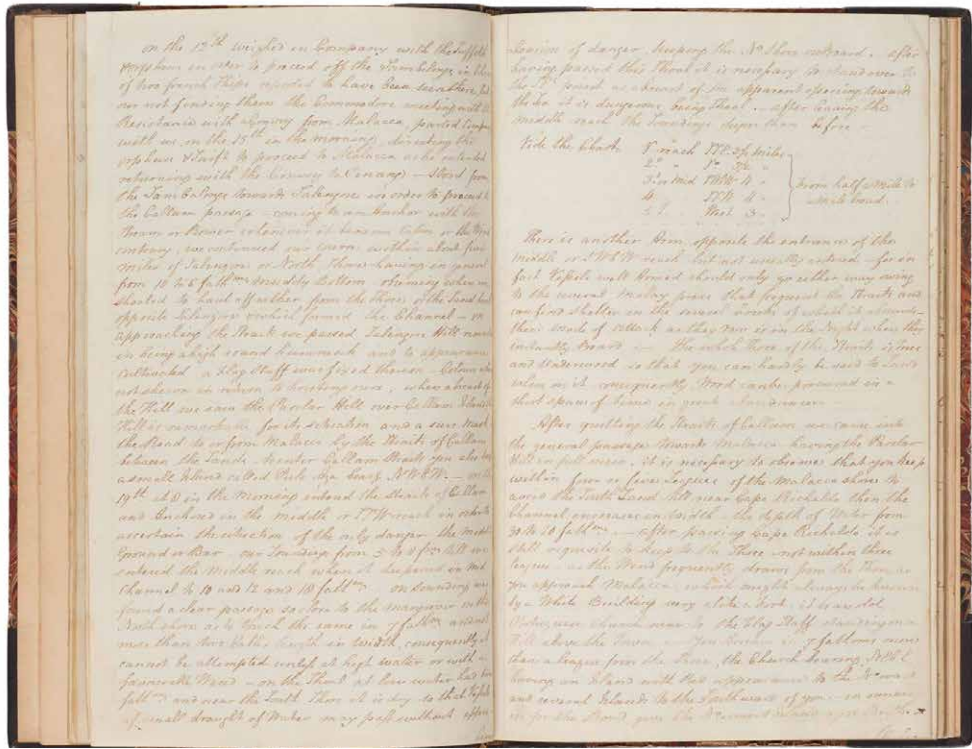 On the 13th weighed in Company with the Suffolk
Orpheus in order to proceed off the Sambelongs in
of two french Ships reported to have been
nor not finding them the Commodore meeting with the
Resistance with a Convoy from Malacca, parted Company
with us on the 15th in the morning, directing the
Orpheus & Swift to proceed to Malacca as he intended
returning with the Convoy to Penang — Stood from
the Sambelongs towards Salengore in order to proceed
the Callam passage — coming to an Anchor with the
Stream or Bower whenever it became Calm or the Wind
contrary, we continued our course within about five
miles of Salengore or North Shore having in general
from 10 to 5 fathms muddy bottom observing when
shoaled to haul off either from the Shore or the Sand
opposite Salengore which formed the Channel — on
approaching the Strait we passed Salengore Hill
in being a high round and to appearance
Cultivated a Flag Staff was fixed thereon — Colours
not shewn in return to hoisting ours, when abreast of
the Hill we saw the Parcelar Hill over Callam Island
Hill is remarkable for its situation and a sure mark
the Stand to or from Malacca by the Straits of Callam
between the Sands — to enter Callam Straits you also
a small Island called Pulo bearg N W b W — on the
19th at 8 in the Morning entered the Straits of Callam
and Anchored in the middle or reach in order to
ascertain the situation of the only danger the middle
Ground or Bar — our Soundings from 5 to 8 fm till we
entered the middle reach when it deepened in Mid
Channel to 10 and 12 and 18 fathm — on sounding we
found a clear passage so close to the mangroves on the
North shore as to touch the same in 7 fathm and not
more than two Cables length in Width, consequently it
cannot be attempted unless at high water or with a
favourable Wind — on the Shoal at low water had two
fathm and near the South Shore it is dry — so that Vessels
of small draught of Water may pass without
of danger keeping the No Shore onboard. after
having passed this Shoal it is necessary to stand over to
the point as abreast of an apparent opening towards
the Sea it is dangerous being Shoal. after leaving the
middle reach the Soundings deeper than before —
Vide the Chart 1st reach miles
2d "
3d or mid 4 "
4 4 "
5 West 3 "
from half a Mile to
a Mile broad.
There is another Arm, opposite the entrance of the
middle or reach but not usually entered — for in
fact Vessels well Armed should only go either way owing
to the several Malay prows that frequent the Straits and
can find shelter in the several Creeks of which it abounds —
their mode of attack as they row is in the Night when they
instantly Board — The whole Shore of the Straits is trees
and Underwood so that you can hardly be said to Land
when in it consequently Wood can be procured in a
short space of time in great abundance —
After quitting the Straits of Callam we came into
the general passage towards Malacca having the Parcelar
Hill in full view, it is necessary to observe that you keep
within four or five leagues of the Malacca shore to
avoid the South Sand till near Cape Richaldo then the
Channel increases in Width — the depth of Water from
30 to 10 fathms — After passing Cape Richaldo it is
still requisite to keep to the Shore — not within three
leagues — as the Wind frequently draws from the Shore as
you approach Malacca, which might always be known
by a White Building very like a Fort, it is an old
Portuguese Church near to the Flag Staff standing on a
Hill above the Town — You Anchor in 7 fathoms more
than a league from the Shore, the Church bearing
having an Island with that appearance to the Noward
and several Islands to the Southward of you —